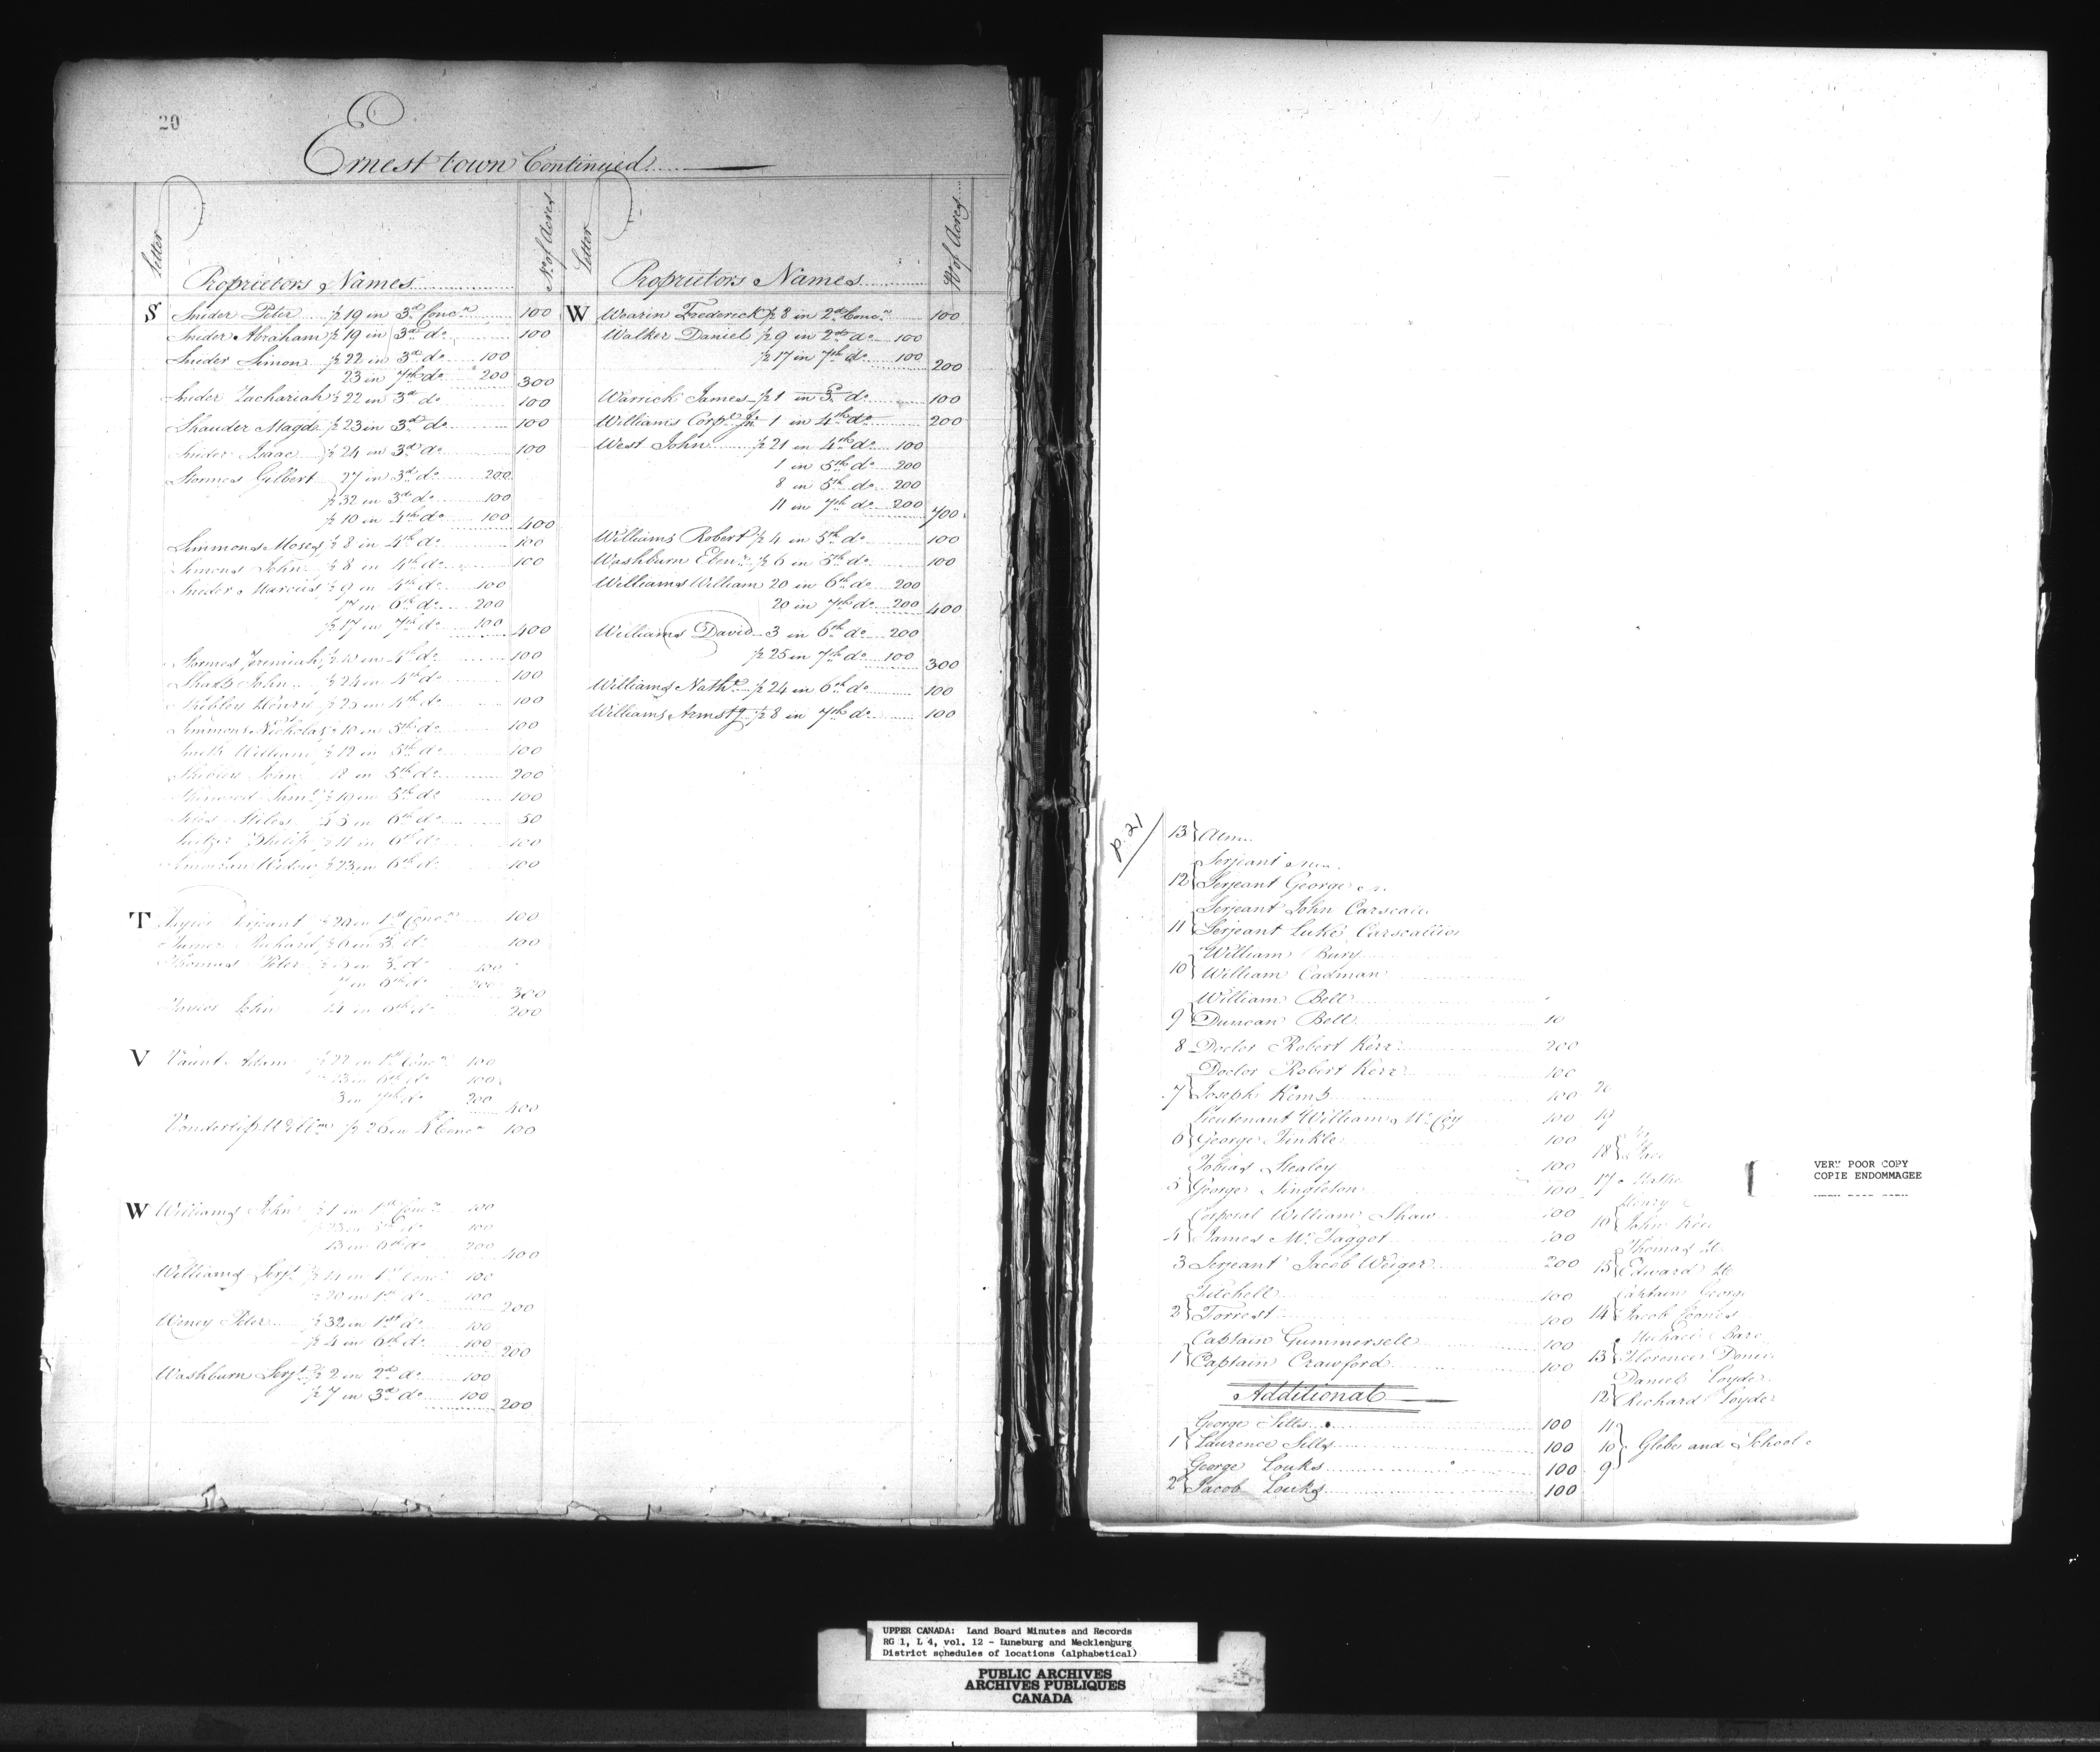 20
Ernest town Continued
Letter
Proprietors Names
No. of Acres
S Snider Peter ½ 19 in 3d Concn 100
Snider Abraham ½ 19 in 3d do 100
Snider Simon ½ 22 in 3d do 100
23 in 7th do 200 300
Snider Zachariah ½ 22 in 3d do 100
Shauder Magda ½ 23 in 3d do 100
Snider Isaac ½ 24 in 3d do 100
Stormes Gilbert 27 in 3d do 200
½ 32 in 3d do 100
½ 10 in 4th do 100 400
Simmons Moses ½ 8 in 4th do 100
Simons John ½ 8 in 4th do 100
Snider Marcus ½ 9 in 4th do 100
17 in 6th do 200
½ 17 in 7th do 100 400
Stormes Jeremiah ½ 10 in 4th do 100
John ½ 24 in 4th do 100
Shibley Henry ½ 25 in 4th do 100
Simmons Nicholas 10 in 5th do 100
Smith William ½ 12 in 5th do 100
Shibley John 18 in 5th do 200
Sherwood Saml ½ 19 in 5th do 100
Miles 3 in 6th do 50
Switzer Philip ½ 11 in 6th do 100
Widow ½ 23 in 6th do 100
T Serjeant ½ 20 in 1st Concn 100
Turner Richard ½ 6 in 3 do 100
Thomas Peter in 3 do 100
7 in 6th do 200 300
John 14 in 6th do 200
V Vaunt Adam ½ 22 in 1st Concn 100
½ 23 in 6th do 100
3 in 7th do 200 400
Vanderlip Willm ½ 26 in 4 Concn 100
W Williams John ½ 1 in 1st Concn 100
½ 23 in 5th do 100
13 in 6th do 200 400
Williams Serjt ½ 11 in 1st Concn 100
½ 20 in 1st do 100 200
Woney Peter ½ 32 in 1st do 100
½ 4 in 6th do 100 200
Washburn Serjt ½ 2 in 2d do 100
½ 7 in 3d do 100 200
Letter
Proprietors Names
No of Acres
W Wearin Frederick ½ 8 in 2d Concn 100
Walker Daniel ½ 9 in 2d do 100
½ 17 in 7th do 100 200
Warrick James ½ 1 in 3d do 100
Williams Corpl Jn 1 in 4th do 200
West John ½ 21 in 4th do 100
1 in 5th do 200
8 in 5th do 200
11 in 7th do 200 700
Williams Robert ½ 4 in 5th do 100
Washburn Ebenr ½ 6 in 5th do 100
Williams William 20 in 6th do 200
20 in 7th do 200 400
Williams David 3 in 6th do 200
½ 25 in 7th do 100 300
Williams Nathl ½ 24 in 6th do 100
Williams Armstg ½ 8 in 7th do 100
p. 21
13
Serjeant
12 Serjeant George
Serjeant John Carscall
11 Serjeant Luke Carscallion
William Bury
10 William Cadman
William Bell
9 Duncan Bell 10
8 Doctor Robert Kerr 200
Doctor Robert Kerr 100
7 Joseph Kemb 100
Lieutenant William McCoy 100
6 George Finkle 100
Tobias Stealey 100
5 George Singleton 100
Corporal William Shaw 100
4 James Mc Taggot 100
3 Serjeant Jacob Weiger 200
Titchell 100
2 Torrest 100
Captain Gummersell 100
1 Captain Crawford 100
Additional
George Sills 100
1 Laurence Sills 100
George Louks 100
2 Jacob Louks 100
20
19
18
17
Henry
16 John
Thomas
15 Edward
Captain George
14 Jacob
Michael
13 Florence
Daniel Loyde
12 Richard Loyde
11
10 Glebe and School
9
VERY POOR COPY
COPIE ENDOMMAGEE
UPPER CANADA: Land Board Minutes and Records
RG 1, L 4, vol. 12 - Luneburg and Mecklenburg
District schedules of locations (alphabetical)
PUBLIC ARCHIVES
ARCHIVES PUBLIQUES
CANADA